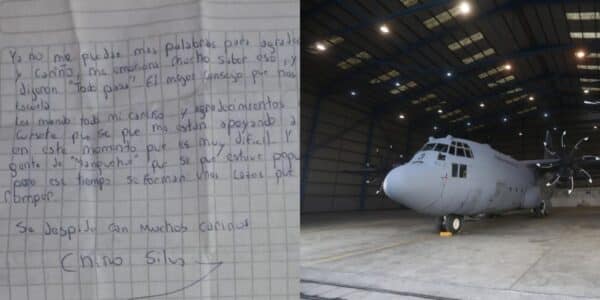 Ya no me quedan mas palabras para agradec
y cariño, me emociona mucho saber eso y
dijeron "Todo pasa" El mejor consejo que nos
escuela
Les mando todo mi cariño y agradecimientos
curseta que se que me están apoyando a
en este momento que es muy difícil y
gente de "Yanquehu" que se que estuve po
pero ese tiempo se forman unos lazos que
romper
Se despide con muchos cariños
Chino Silva